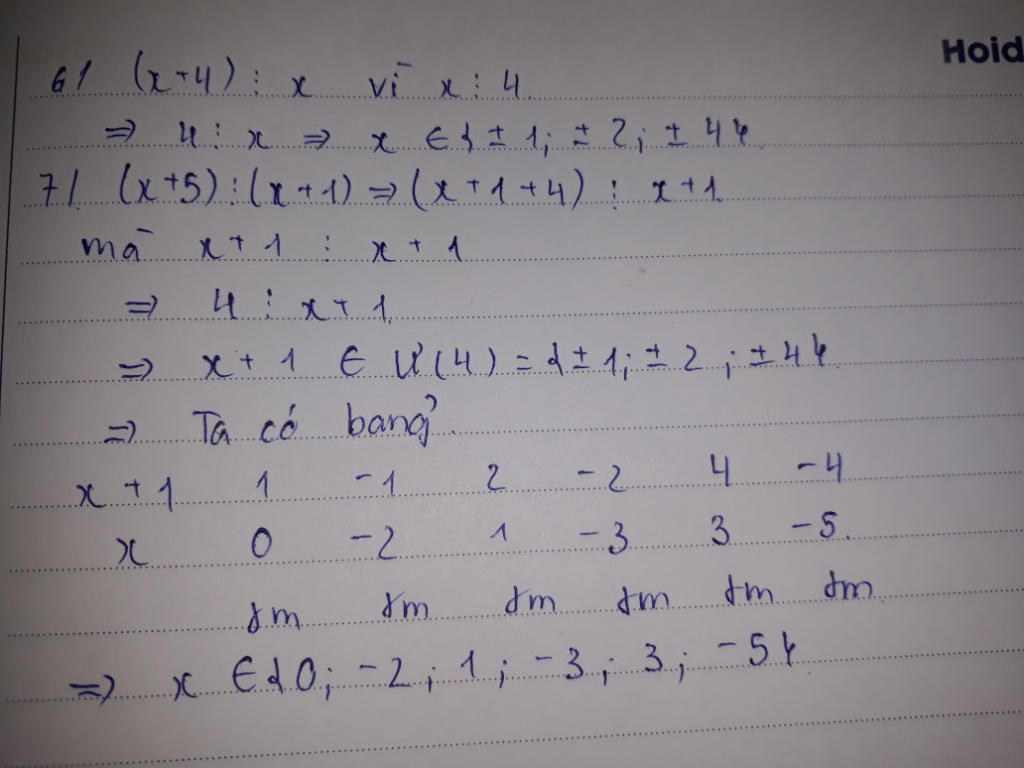 Hoid
6/ (x+4) ⋮ x vì x ⋮ 4
⇒ 4 ⋮ x ⇒ x ∈ {±1; ±2; ±4}
7/ (x+5) ⋮ (x+1) ⇒ (x+1+4) ⋮ x+1
mà x+1 ⋮ x+1
⇒ 4 ⋮ x+1
⇒ x+1 ∈ Ư(4) = {±1; ±2; ±4}
⇒ Ta có bảng
x+1 1 -1 2 -2 4 -4
x 0 -2 1 -3 3 -5
tm tm tm tm tm tm
⇒ x ∈ {0; -2; 1; -3; 3; -5}